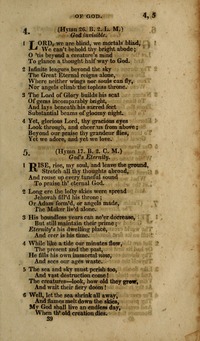 OF GOD. 4, 5
4. (HYMN 26. B. 2. L. M.)
God invisible.
1 LORD, we are blind, we mortals blind,
We can't behold thy bright abode;
O 'tis beyond a creature's mind
To glance a thought half way to God.
2 Infinite leagues beyond the sky
The Great Eternal reigns alone,
Where neither wings nor souls can fly,
Nor angels climb the topless throne.
3 The Lord of Glory builds his seat
Of gems incomparably bright,
And lays beneath his sacred feet
Substantial beams of gloomy night.
4 Yet, glorious Lord, thy gracious eyes
Look through, and cheer us from above;
Beyond our praise thy grandeur flies,
Yet we adore, and yet we love.
5. (HYMN 17. B. 2. C. M.)
God's Eternity.
1 RISE, rise, my soul, and leave the ground,
Stretch all thy thoughts abroad,
And rouse up every tuneful sound
To praise th' eternal God.
2 Long ere the lofty skies were spread
Jehovah fill'd his throne;
Or Adam form'd, or angels made,
The Maker liv'd alone.
3 His boundless years can ne'er decrease,
But still maintain their prime;
Eternity's his dwelling place,
And ever is his time.
4 While like a tide our minutes flow,
The present and the past,
He fills his own immortal now,
And sees our ages waste.
5 The sea and sky must perish too,
And vast destruction come!
The creatures—look, how old they grow,
And wait their fiery doom!
6 Well, let the sea shrink all away,
And flames melt down the skies,
My God shall live an endless day,
When th' old creation dies.
39